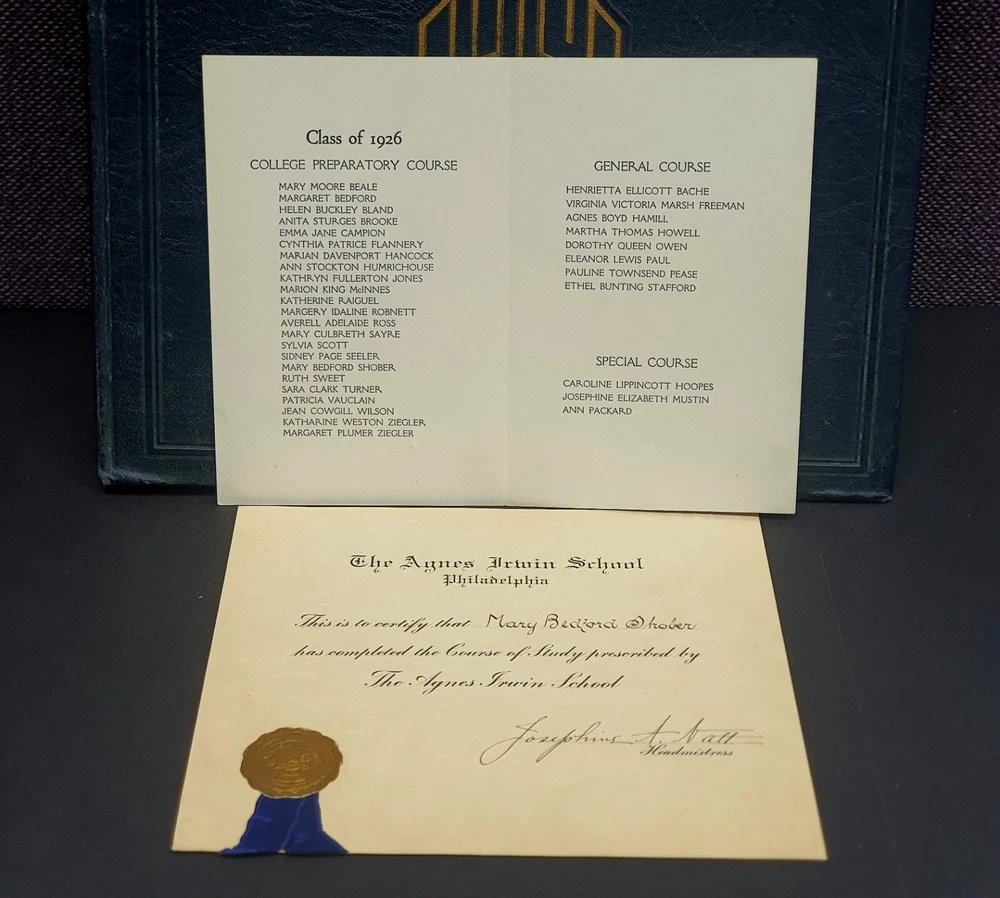 Class of 1926
COLLEGE PREPARATORY COURSE
MARY MOORE BEALE
MARGARET BEDFORD
HELEN BUCKLEY BLAND
ANITA STURGES BROOKE
EMMA JANE CAMPION
CYNTHIA PATRICE FLANNERY
MARIAN DAVENPORT HANCOCK
ANN STOCKTON HUMRICHOUSE
KATHRYN FULLERTON JONES
MARION KING McINNES
KATHERINE RAIGUEL
MARGERY IDALINE ROBNETT
AVERELL ADELAIDE ROSS
MARY CULBRETH SAYRE
SYLVIA SCOTT
SIDNEY PAGE SEELER
MARY BEDFORD SHOBER
RUTH SWEET
SARA CLARK TURNER
PATRICIA VAUCLAIN
JEAN COWGILL WILSON
KATHARINE WESTON ZIEGLER
MARGARET PLUMER ZIEGLER
GENERAL COURSE
HENRIETTA ELLICOTT BACHE
VIRGINIA VICTORIA MARSH FREEMAN
AGNES BOYD HAMILL
MARTHA THOMAS HOWELL
DOROTHY QUEEN OWEN
ELEANOR LEWIS PAUL
PAULINE TOWNSEND PEASE
ETHEL BUNTING STAFFORD
SPECIAL COURSE
CAROLINE LIPPINCOTT HOOPES
JOSEPHINE ELIZABETH MUSTIN
ANN PACKARD
The Agnes Irwin School
Philadelphia
This is to certify that Mary Bedford Shober
has completed the Course of Study prescribed by
The Agnes Irwin School
Josephine A. Natt
Headmistress